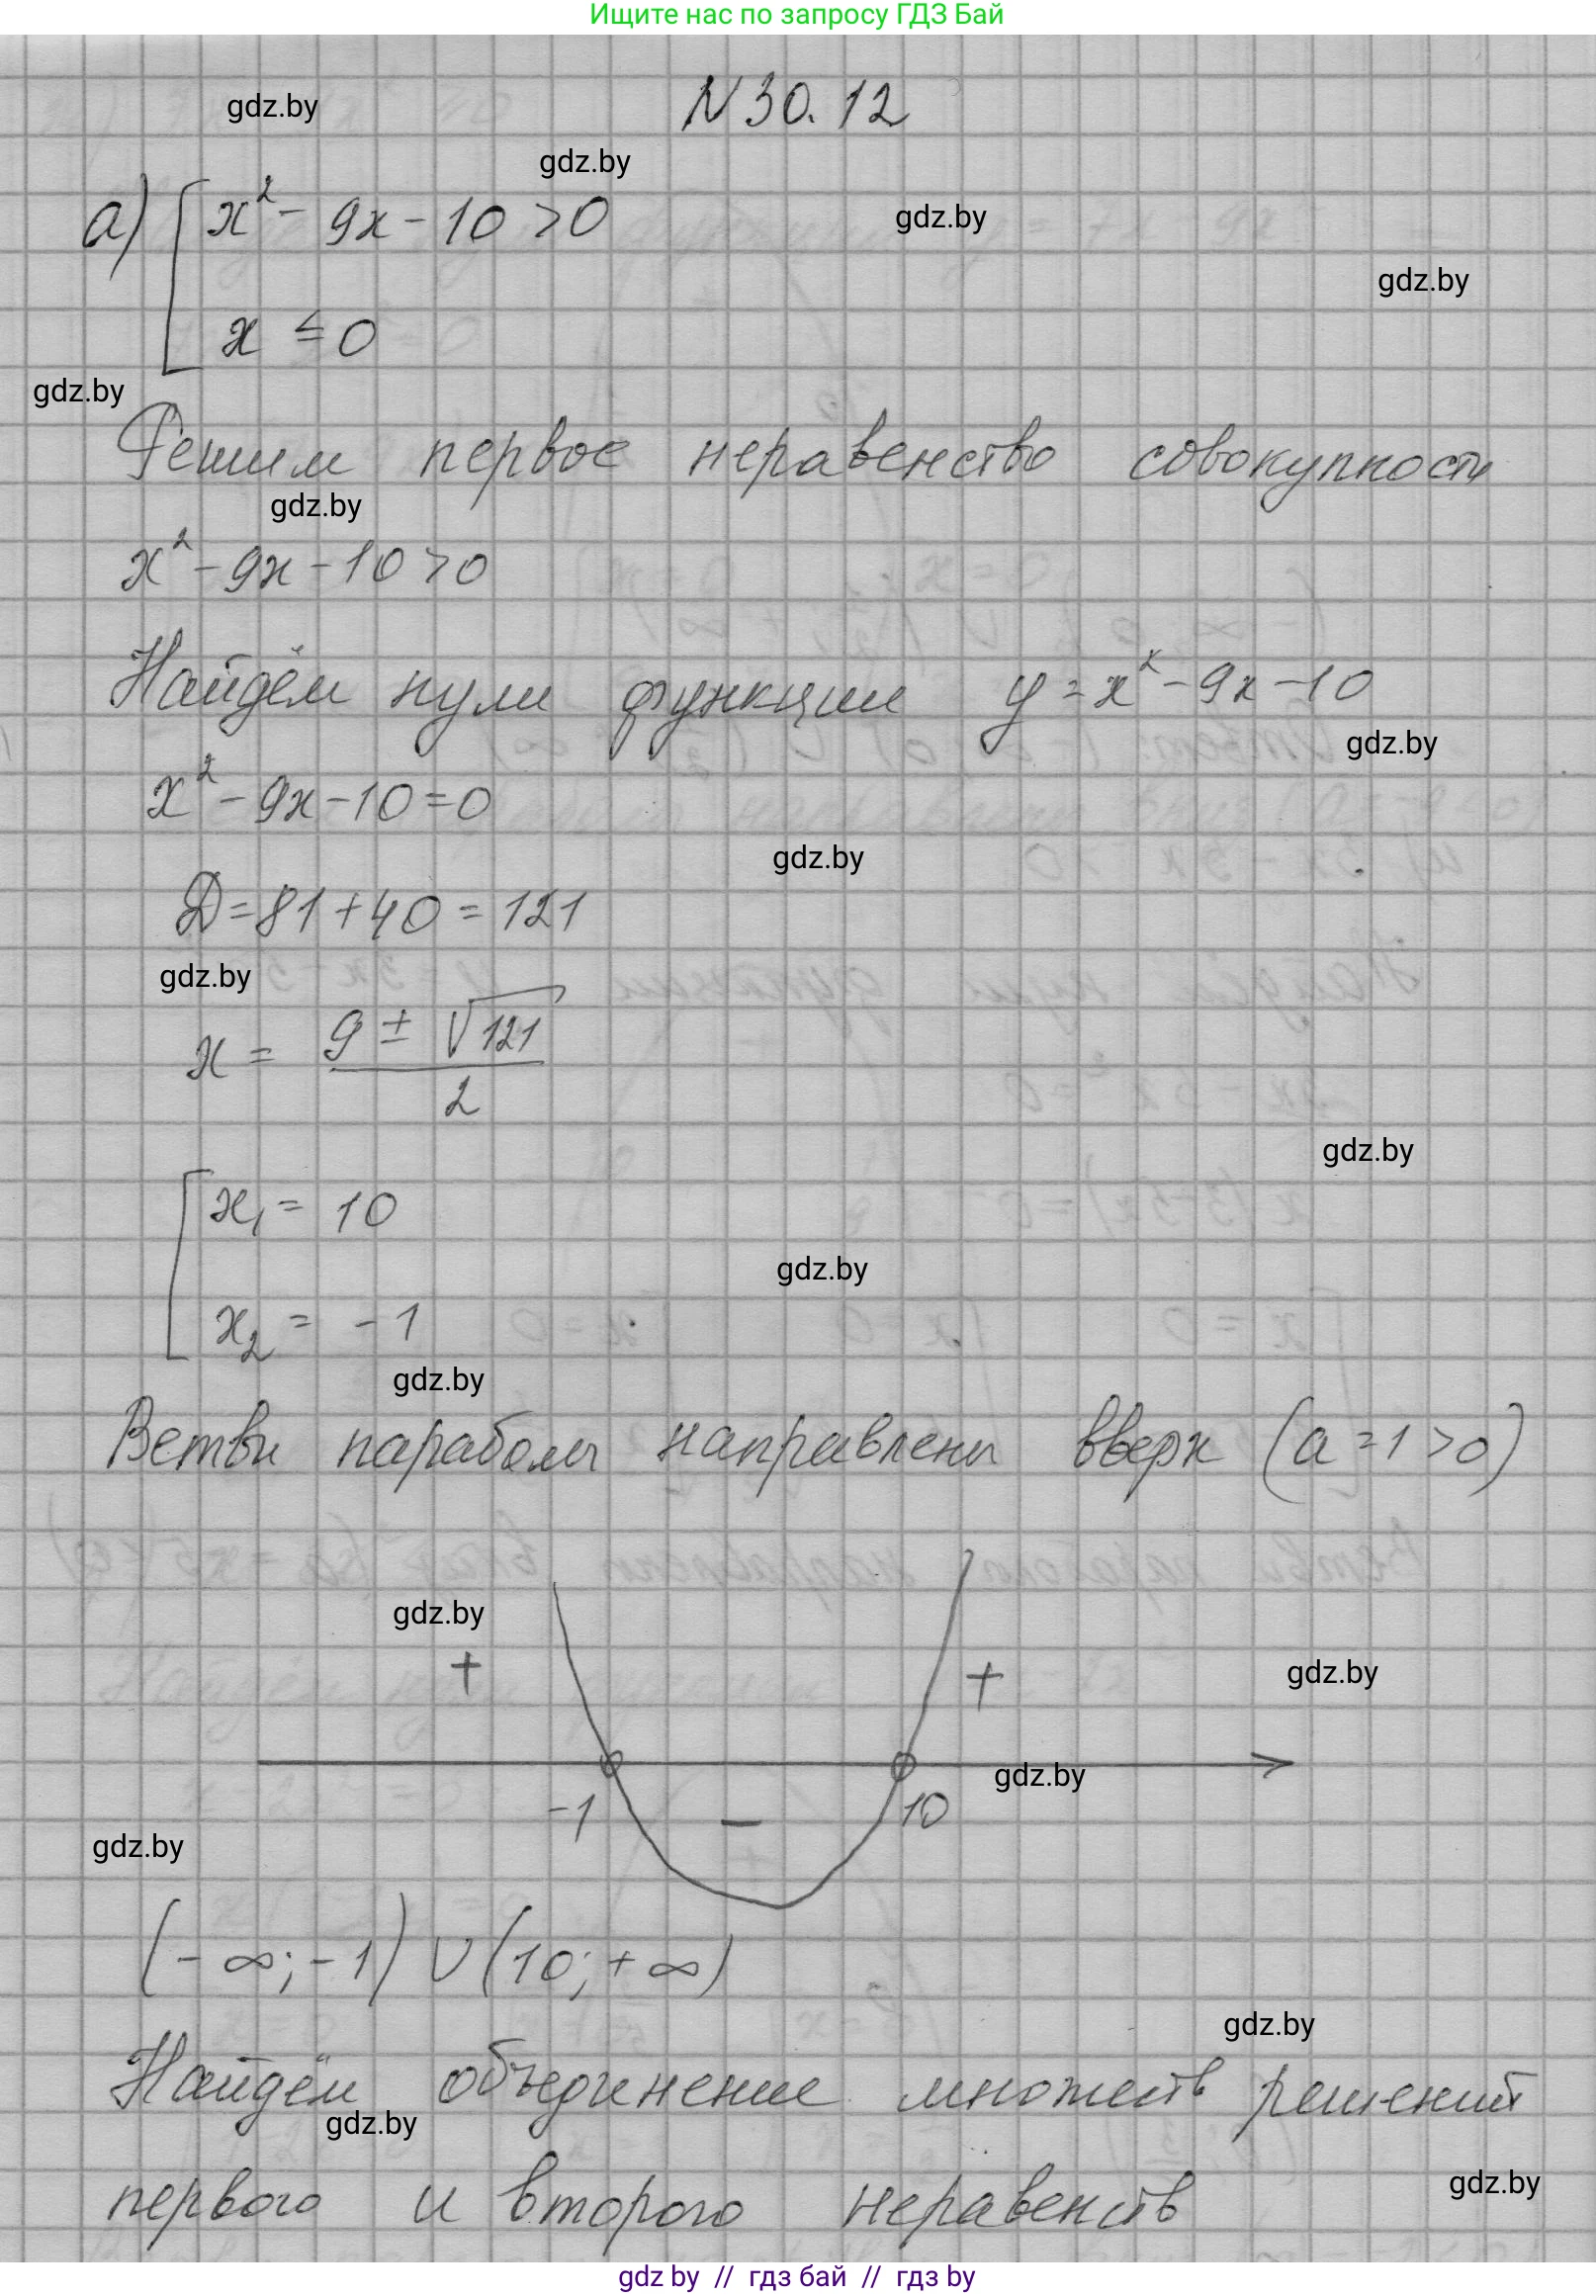 Ищите нас по запросу ГДЗ Бай
N 30.12
gdz.by
gdz.by
а) [ x² - 9x - 10 > 0
gdz.by
gdz.by
x ≤ 0
gdz.by
Решим первое неравенство совокупности
gdz.by
x² - 9x - 10 > 0
Найдём нули функции y = x² - 9x - 10
gdz.by
x² - 9x - 10 = 0
gdz.by
D = 81 + 40 = 121
gdz.by
x = (9 ± √121) / 2
gdz.by
[ x₁ = 10
gdz.by
x₂ = -1
gdz.by
Ветви параболы направлены вверх (a = 1 > 0)
gdz.by
+ +
gdz.by
gdz.by
-1 - 10
gdz.by
(-∞; -1) ∪ (10; +∞)
gdz.by
Найдём объединение множеств решений
gdz.by
gdz.by
первого и второго неравенств
gdz.by // гдз бай // гдз by